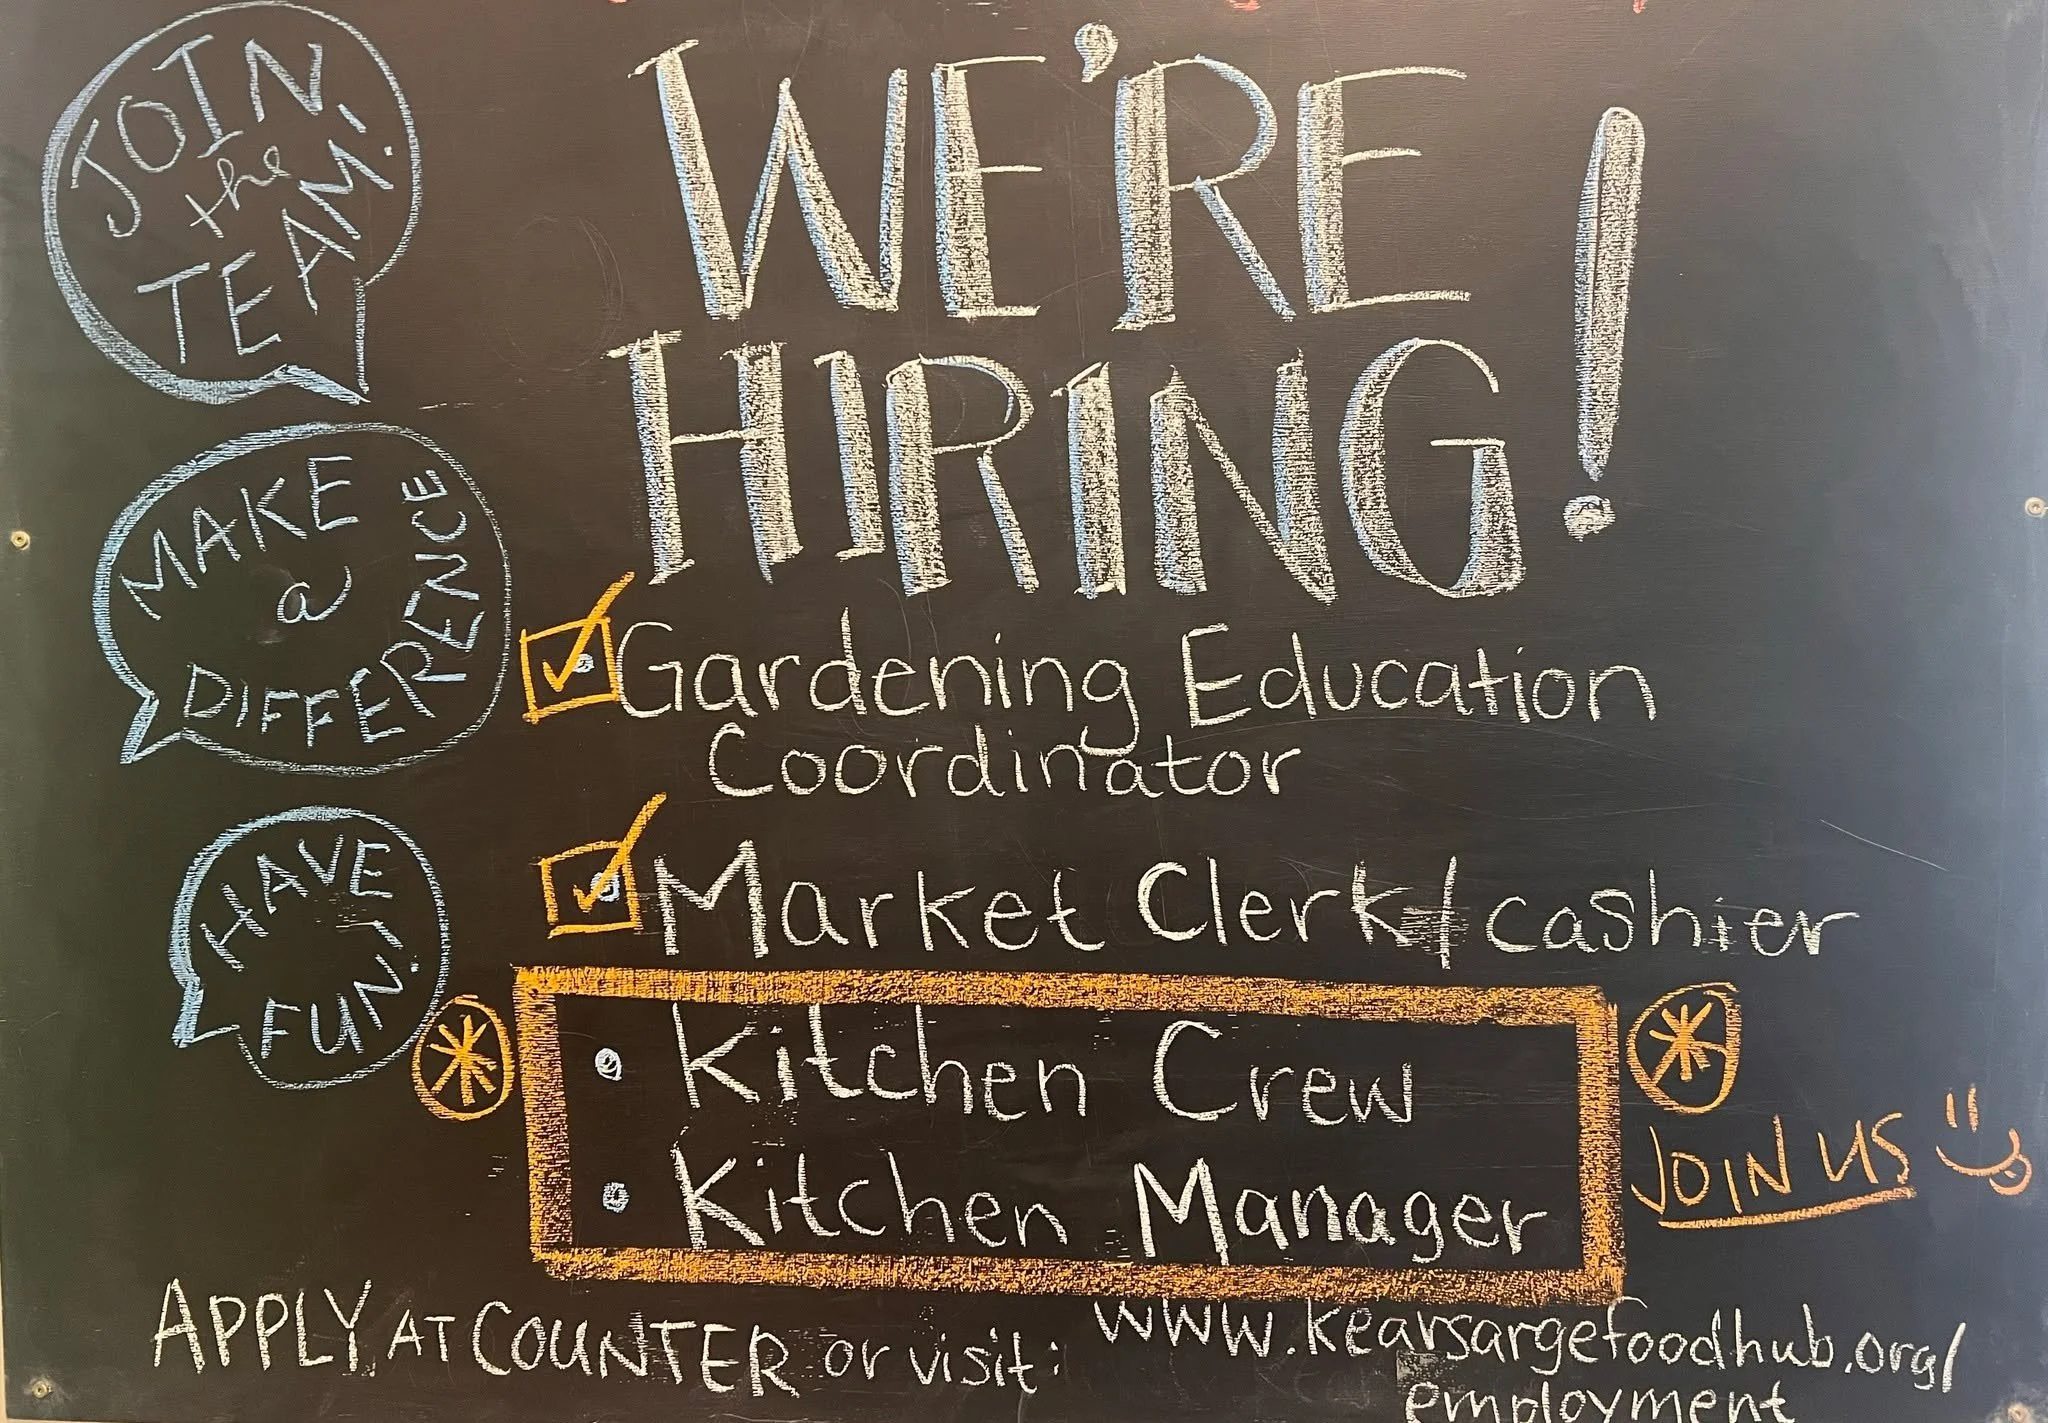 JOIN
the
TEAM!
MAKE
a
DIFFERENCE
HAVE
FUN!
WE'RE
HIRING!
Gardening Education
Coordinator
Market Clerk/cashier
Kitchen Crew
Kitchen Manager
JOIN US
APPLY AT COUNTER or visit: www.kearsargefoodhub.org/
employment